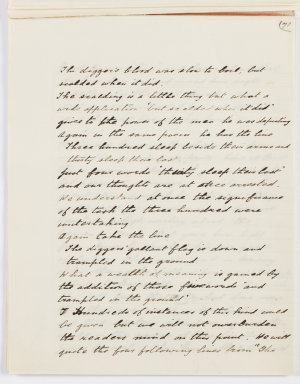 (7)
The digger's blood was slow to boil, but
scalded when it did.
The scalding is a little thing but what a
wide application "but scalded when it did"
gives to the power of the men he was depicting
Again in the same poem he has the line
Three hundred sleep beside their arms and
thirty sleep than lost
Just four words "thirty sleep than lost"
and our thoughts are at once arrested
We understand at once the significance
of the task the three hundred were
undertaking
Again take the line
The diggers' gallant flag is down and
trampled in the ground
What a wealth of meaning is gained by
the addition of those few words "and
trampled in the ground"
Hundreds of instances of this kind could
be given but we will not overburden
the readers mind on this point. He will
quote the four following lines from "The